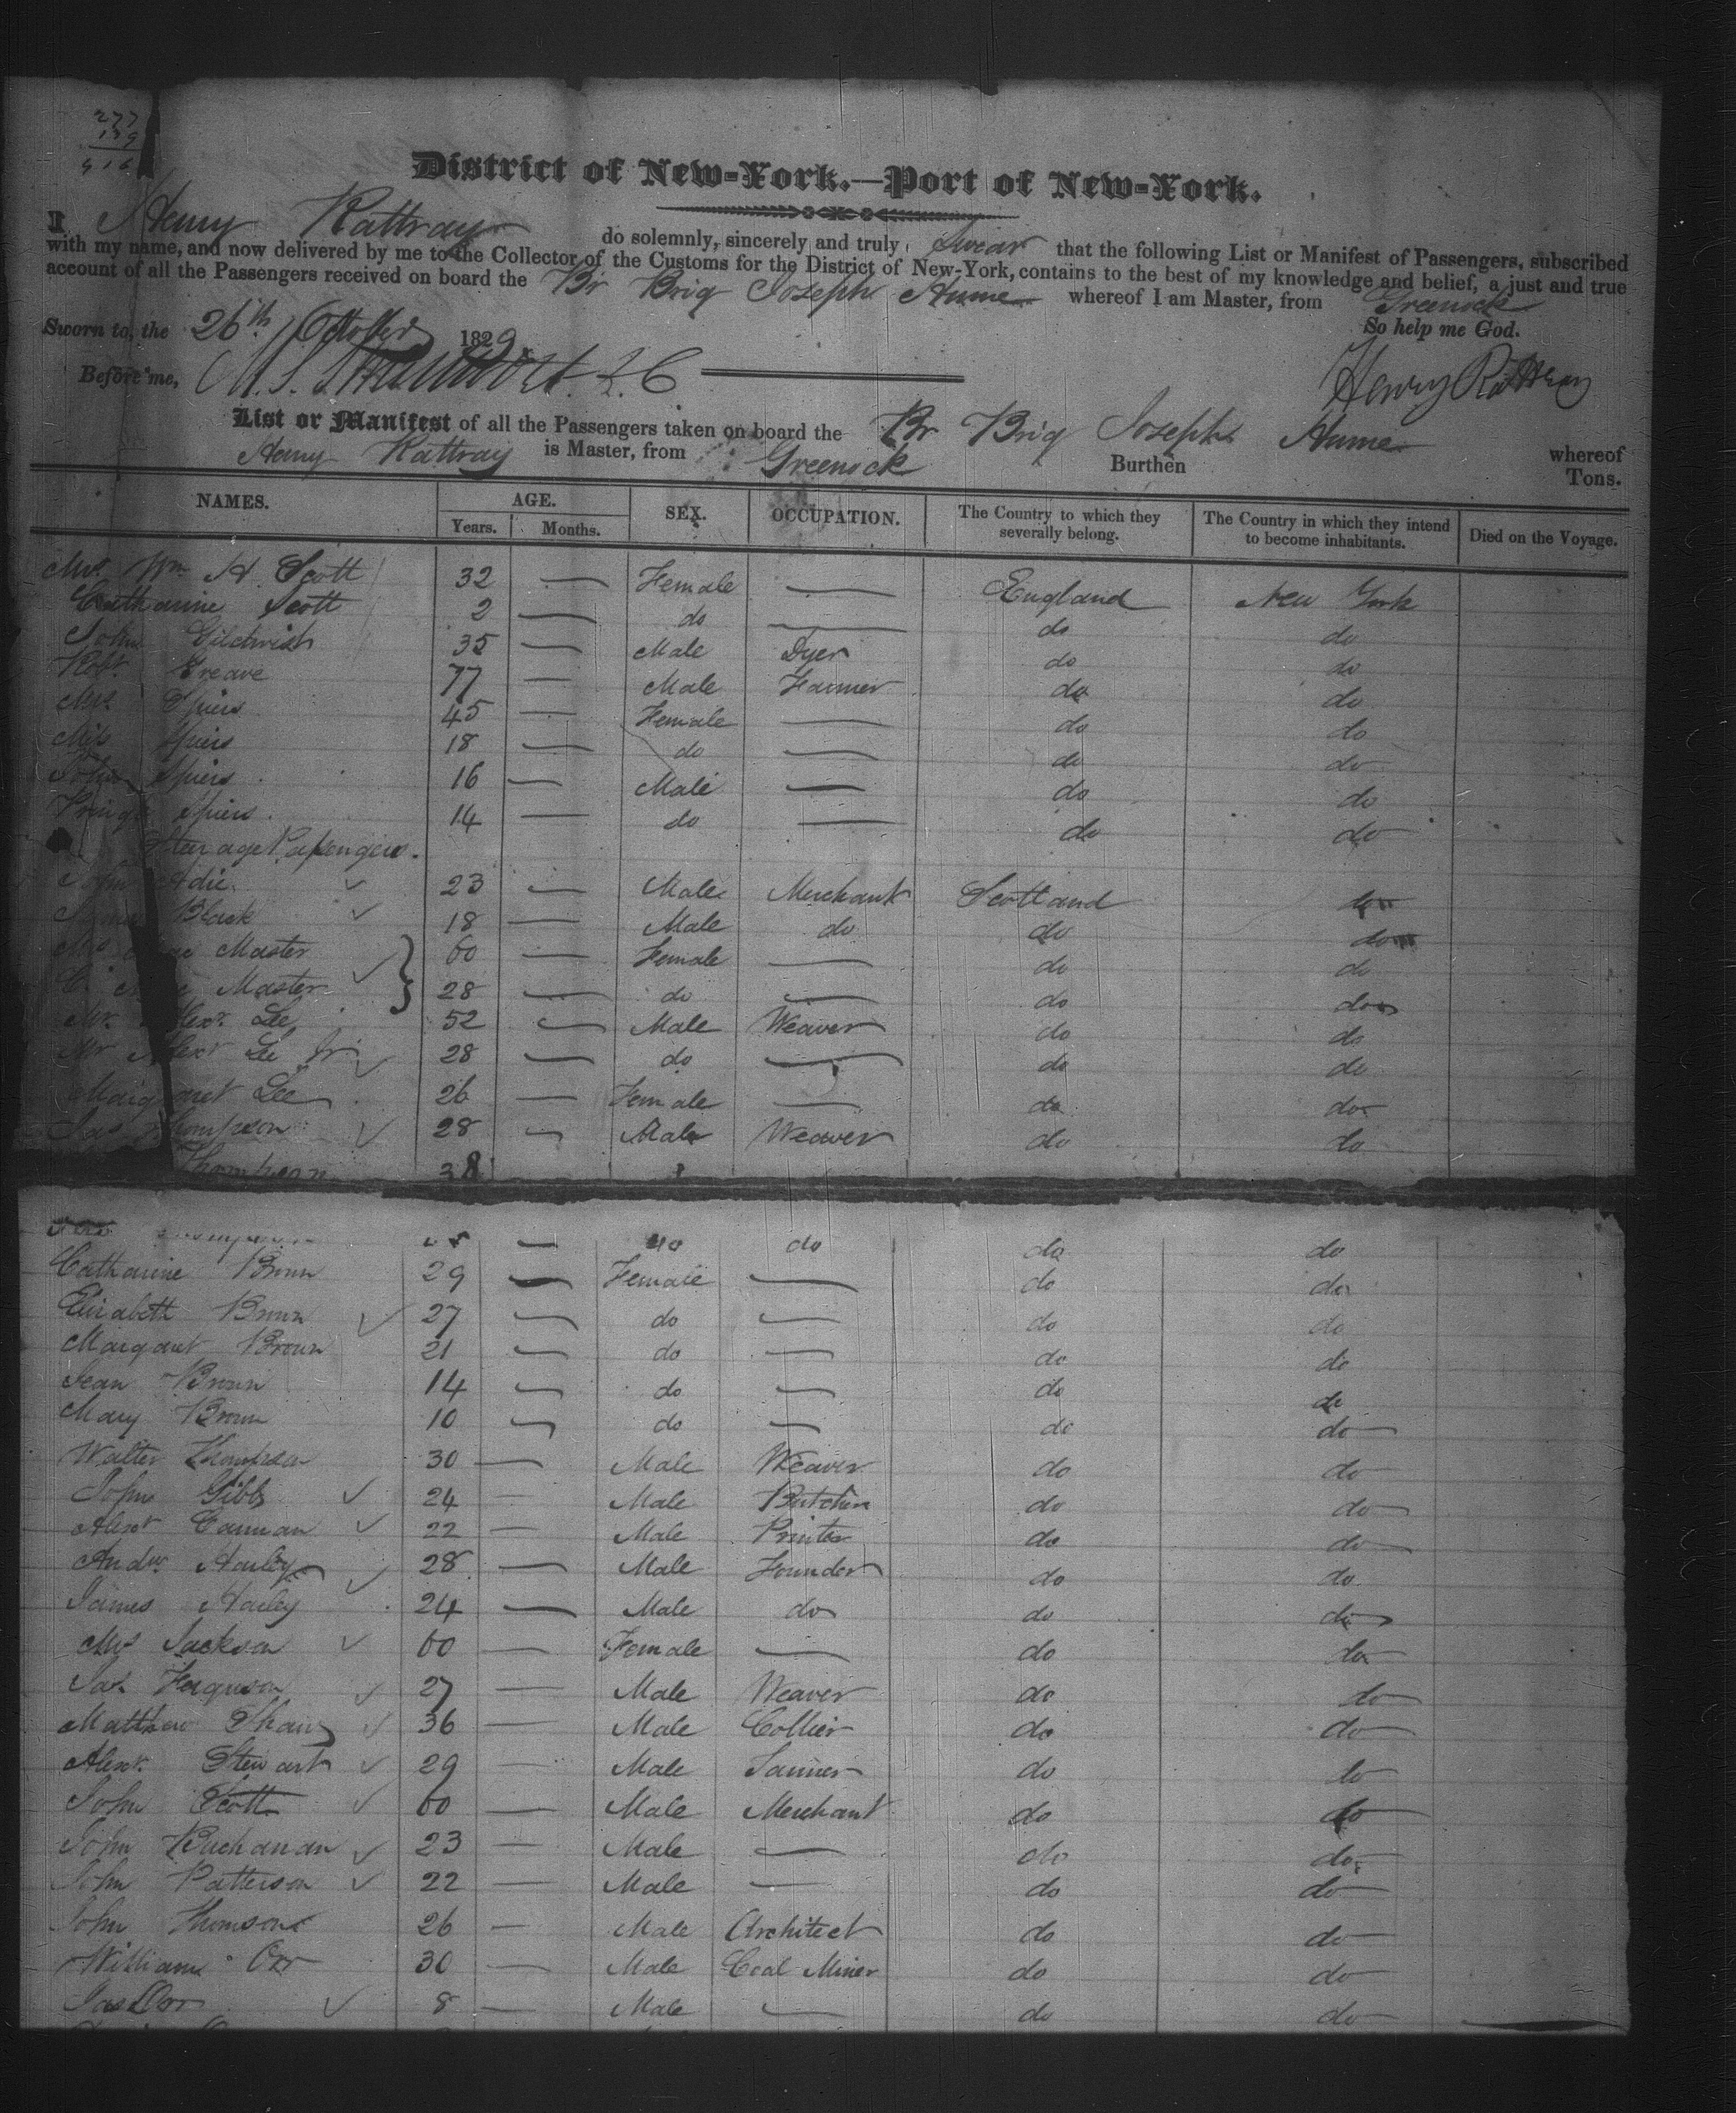 277
139
416
District of New-York.—Port of New-York.
I Henry Rattray do solemnly, sincerely and truly Swear that the following List or Manifest of Passengers, subscribed
with my name, and now delivered by me to the Collector of the Customs for the District of New-York, contains to the best of my knowledge and belief, a just and true
account of all the Passengers received on board the Br Brig Joseph Hume whereof I am Master, from Greenock
Sworn to, the 26th October 1829. So help me God.
Before me, Henry Rattray
List or Manifest of all the Passengers taken on board the Br Brig Joseph Hume whereof
Henry Rattray is Master, from Greenock Burthen Tons.
NAMES. AGE. SEX. OCCUPATION. The Country to which they severally belong. The Country in which they intend to become inhabitants. Died on the Voyage.
Years. Months.
Mrs Wm H Scott 32 — Female — England New York
Catharine Scott 2 — do — do do
John Gilchrist 35 — Male Dyer do do
Robt Greave 77 — Male Farmer do do
Mrs Spiers 45 — Female — do do
Miss Spiers 18 — do — do do
John Spiers 16 — Male — do do
Spiers 14 — do — do do
Stearage Passengers.
John Adie ✓ 23 — Male Merchant Scotland do
Black ✓ 18 — Male do do do
Mrs Master 60 — Female — do do
Master ✓ 28 — do — do do
Mr Alexr Lee 52 — Male Weaver do do
Mr Alexr Lee Jr ✓ 28 — do — do do
Margaret Lee 26 — Female — do do
Jas Thompson ✓ 28 — Male Weaver do do
Thompson 38 — do do do do
Catharine Brown 29 — Female — do do
Elizabeth Brown ✓ 27 — do — do do
Margaret Brown 21 — do — do do
Jean Brown 14 — do — do do
Mary Brown 10 — do — do do
Walter Thompson 30 — Male Weaver do do
John Gibb ✓ 24 — Male Butcher do do
Alexr ✓ 22 — Male Printer do do
Andw Harley ✓ 28 — Male Founder do do
James Harley 24 — Male do do do
Mrs Jackson ✓ 60 — Female — do do
Jas Ferguson ✓ 27 — Male Weaver do do
Matthew Shaw ✓ 36 — Male Collier do do
Alexr Stewart ✓ 29 — Male Tanner do do
John Scott ✓ 60 — Male Merchant do do
John Buchanan ✓ 23 — Male — do do
John Patterson ✓ 22 — Male — do do
John Thomson 26 — Male Architect do do
William Orr 30 — Male Coal Miner do do
Jas Orr ✓ 8 — Male — do do